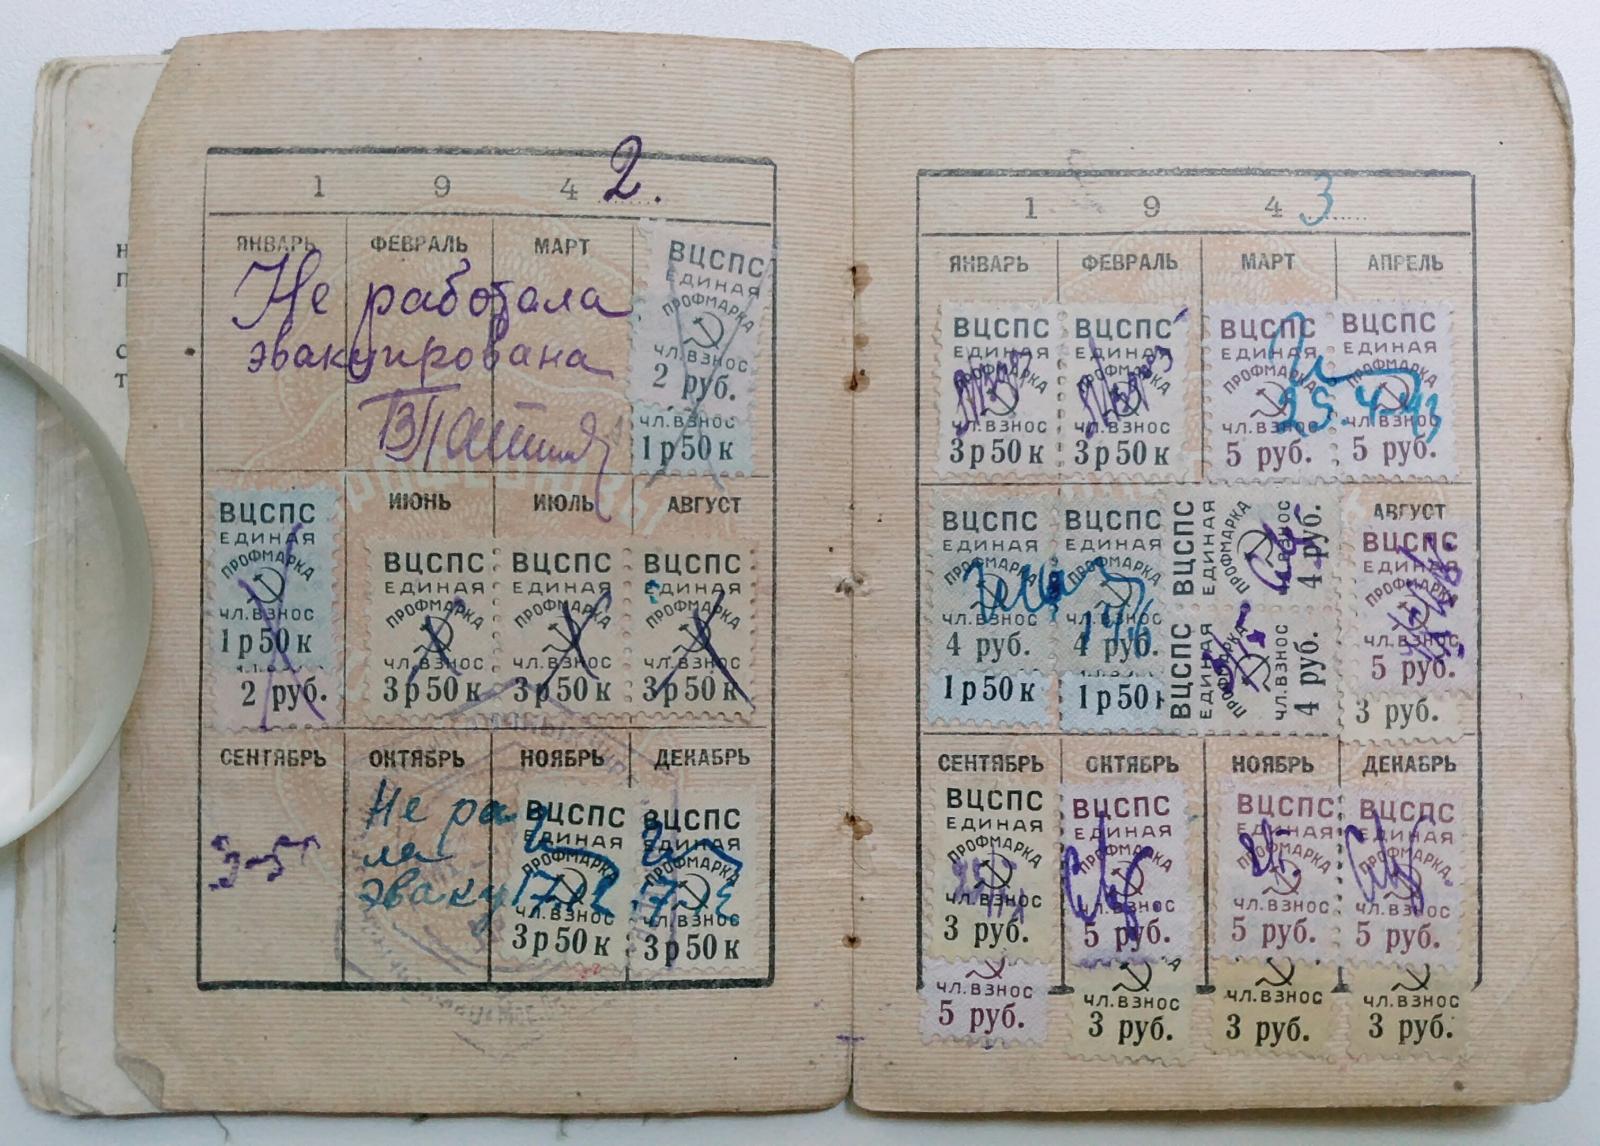 1 9 4 2.
ЯНВАРЬ ФЕВРАЛЬ МАРТ
Не работала
эвакуирована
ВЦСПС
ЕДИНАЯ
ПРОФМАРКА
ЧЛ. ВЗНОС
2 руб.
ЧЛ. ВЗНОС
1 р 50 к
ИЮНЬ ИЮЛЬ АВГУСТ
ВЦСПС
ЕДИНАЯ
ПРОФМАРКА
ЧЛ. ВЗНОС
1 р 50 к
2 руб.
ВЦСПС ВЦСПС ВЦСПС
ЕДИНАЯ ЕДИНАЯ ЕДИНАЯ
ПРОФМАРКА ПРОФМАРКА ПРОФМАРКА
ЧЛ. ВЗНОС ЧЛ. ВЗНОС ЧЛ. ВЗНОС
3 р 50 к 3 р 50 к 3 р 50 к
СЕНТЯБРЬ ОКТЯБРЬ НОЯБРЬ ДЕКАБРЬ
3-5
Не ра
ла
эваку
ВЦСПС ВЦСПС
ЕДИНАЯ ЕДИНАЯ
ПРОФМАРКА ПРОФМАРКА
ЧЛ. ВЗНОС ЧЛ. ВЗНОС
3 р 50 к 3 р 50 к
1 9 4 3
ЯНВАРЬ ФЕВРАЛЬ МАРТ АПРЕЛЬ
ВЦСПС ВЦСПС ВЦСПС ВЦСПС
ЕДИНАЯ ЕДИНАЯ ЕДИНАЯ ЕДИНАЯ
ПРОФМАРКА ПРОФМАРКА ПРОФМАРКА ПРОФМАРКА
ЧЛ. ВЗНОС ЧЛ. ВЗНОС ЧЛ. ВЗНОС ЧЛ. ВЗНОС
3 р 50 к 3 р 50 к 5 руб. 5 руб.
АВГУСТ
ВЦСПС ВЦСПС
ЕДИНАЯ ЕДИНАЯ
ПРОФМАРКА ПРОФМАРКА
ЧЛ. ВЗНОС ЧЛ. ВЗНОС
4 руб. 4 руб.
1 р 50 к 1 р 50 к
ВЦСПС ВЦСПС
ЕДИНАЯ ЕДИНАЯ
ПРОФМАРКА ПРОФМАРКА
ЧЛ. ВЗНОС ЧЛ. ВЗНОС
4 руб. 4 руб.
ВЦСПС
ЕДИНАЯ
ПРОФМАРКА
ЧЛ. ВЗНОС
5 руб.
3 руб.
СЕНТЯБРЬ ОКТЯБРЬ НОЯБРЬ ДЕКАБРЬ
ВЦСПС ВЦСПС ВЦСПС ВЦСПС
ЕДИНАЯ ЕДИНАЯ ЕДИНАЯ ЕДИНАЯ
ПРОФМАРКА ПРОФМАРКА ПРОФМАРКА ПРОФМАРКА
ЧЛ. ВЗНОС ЧЛ. ВЗНОС ЧЛ. ВЗНОС ЧЛ. ВЗНОС
3 руб. 5 руб. 5 руб. 5 руб.
ЧЛ. ВЗНОС ЧЛ. ВЗНОС ЧЛ. ВЗНОС ЧЛ. ВЗНОС
5 руб. 3 руб. 3 руб. 3 руб.